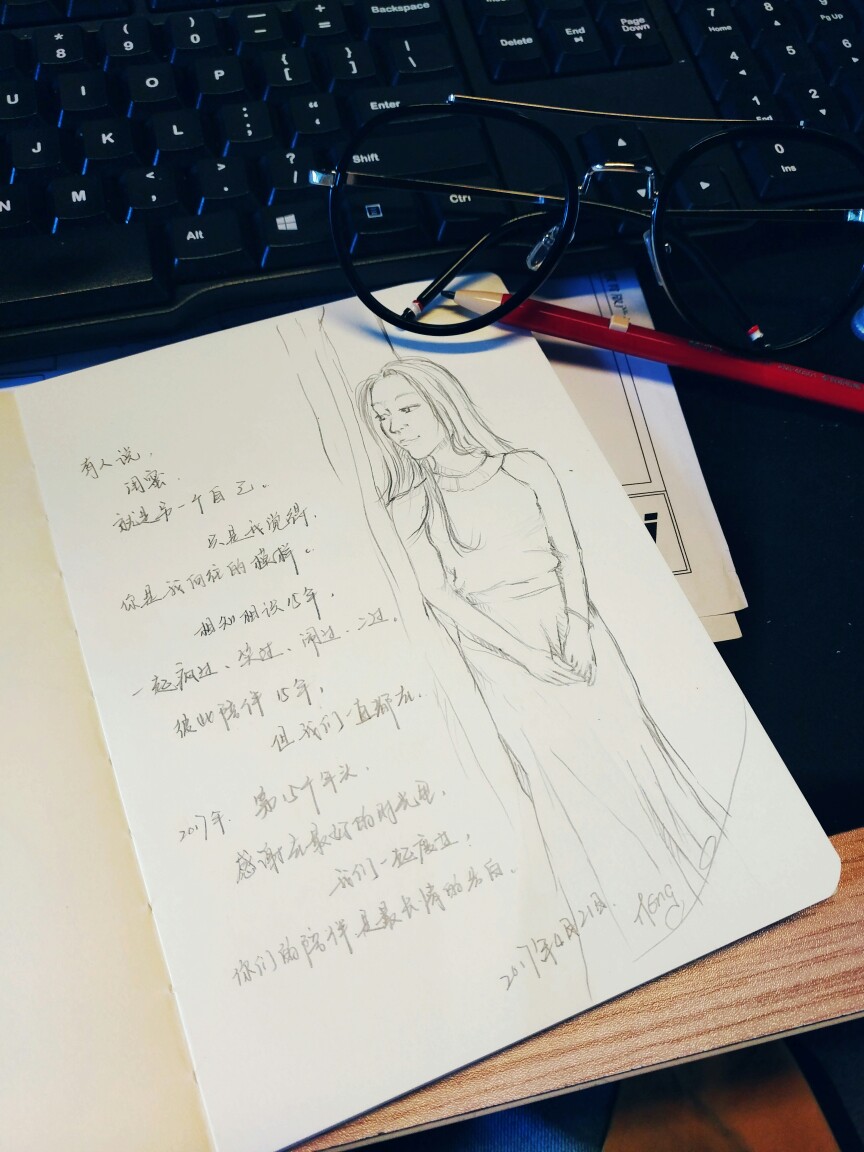 有人说,
闺蜜,
就是另一个自己。
只是我觉得,
你是我向往的模样。
相知相识15年,
一起疯过、笑过、闹过、二过。
彼此陪伴15年,
但我们一直都在。
2017年. 第15个年头,
感谢在最好的时光里,
我们一起度过,
你们的陪伴是最长情的告白。
2017年4月21日.
Heng
* 8
( 9
) 0
_ -
+ =
Backspace
U
I
O
P
{ [
} ]
| \
J
K
L
: ;
Enter
N
M
< ,
> .
? /
Shift
Alt
Ctrl
Delete
End
Page Down
7 Home
8
9 Pg Up
4
5
6
1 End
2
0 Ins